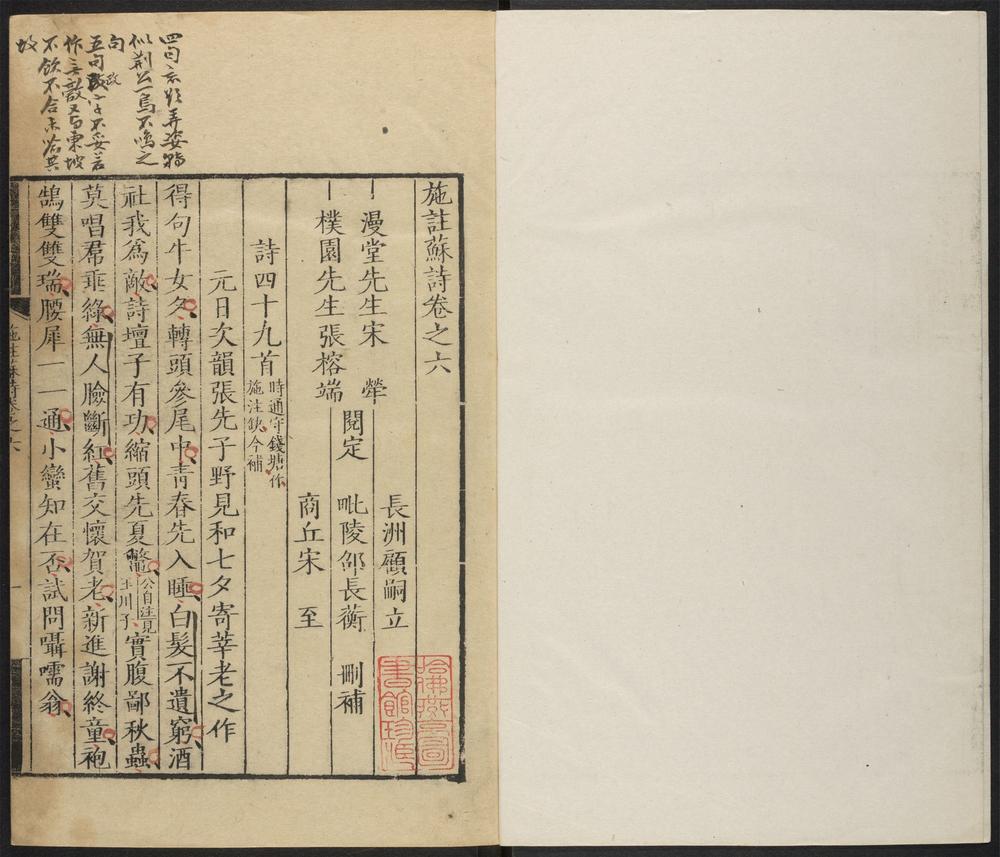 四句弄姿
似荊公一鳥不鳴之
句
五句敵字不妥若
作無敵又與東坡
不飲不合
施註蘇詩卷之六
長洲顧嗣立
漫堂先生宋　犖
毗陵邵長蘅　刪補
閱定
樸園先生張榕端
商丘宋　至
詩四十九首
時通守錢塘作
施注缺今補
元日次韻張先子野見和七夕寄莘老之作
得句牛女夕轉頭參尾中青春先入睡白髮不遺窮酒
社我爲敵詩壇子有功縮頭先夏鱉公自注見玉川子實腹鄙秋蟲
莫唱帬垂綠無人臉斷紅舊交懷賀老新進謝終童袍
鵠雙雙瑞腰犀一一通小蠻知在否試問囁嚅翁
施註蘇詩卷之六
一
哈佛燕京圖
書館珍藏